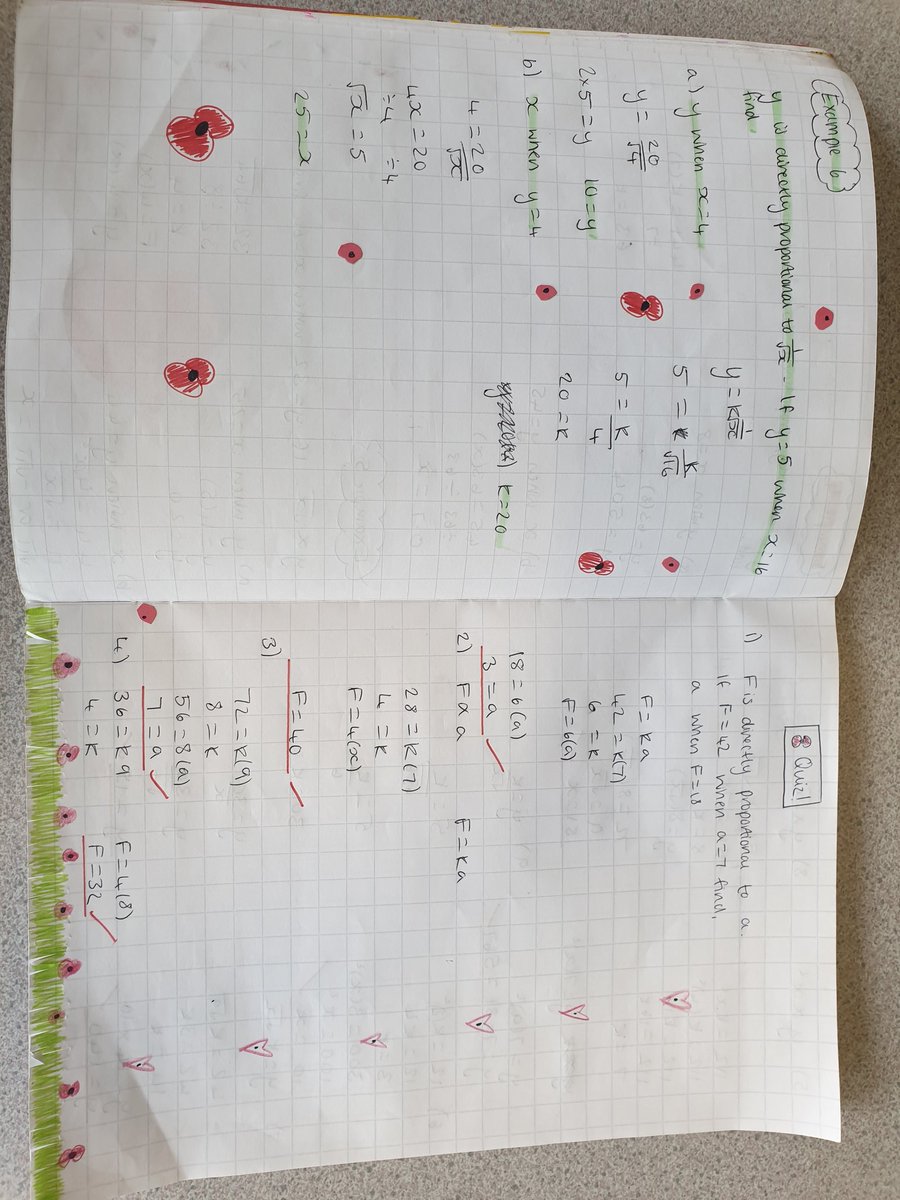 Example 6
y is directly proportional to 1/√x - If y=5 when x=16
find,
a) y when x=4
y = 20/√4
2×5=y 10=y
b) x when y=4
4 = 20/√x
4x=20
÷4 ÷4
√x=5
25=x
y=k 1/√x
5 = k/√16
5 = k/4
20=k
k=20
8 Quiz!
1) F is directly proportional to a.
If F=42 when a=7 find,
a when F=18
F=ka
42=k(7)
6=k
F=6(a)
18=6(a)
3=a ✓
2) F∝a F=ka
28=k(7)
4=k
F=4(x)
F=40 ✓
3)
72=k(9)
8=k
56=8(a)
7=a ✓
4) 36=k9 F=4(8)
4=k F=32 ✓